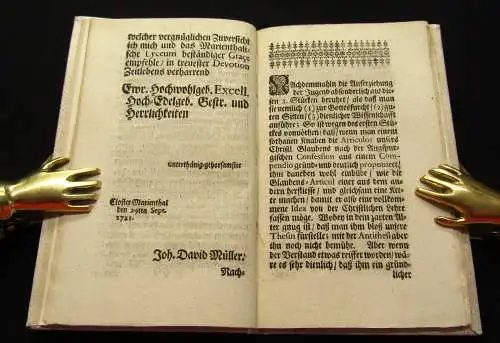 welcher vergnüglichen Zuversicht
ich mich und das Marienthali-
sche Lyceum beständiger Grace
empfehle, in treuester Devotion
Zeitlebens verharrend
Ewr. Hochwohlgeb. Excell.
Hoch-Edelgeb. Gestr. und
Herrlichkeiten
unterthänig-gehorsamster
Closter Marienthal
den 29ten Sept.
1721.
Joh. David Müller.
Nach-
Nachdemmahln die Aufferziehung
der Jugend absonderlich aus die-
sen 3. Stücken beruhet/ als daß man
sie nemlich (1) zur Gottesfurcht (2) guten
Sitten/ (3) dienlicher Wissenschafft
anführe: So ist wegen des ersten Stü-
ckes vonnöthen; daß/ wenn man einem
forthanen Knaben die Articulos unsers
Christl. Glaubens nach der Augspur-
gischen Confession aus einem Com-
pendio gründ- und deutlich proponiret,
ihn daneben wohl einbilde/ wie die
Glaubens-Articul einer aus dem an-
dern herfliesse/ und gleichsam eine Ket-
te machen/ damit er also eine vollkom-
mene Idea von der Christlichen Lehre
fassen möge. Wobey in dem zarten Al-
ter gnug ist/ daß man ihm bloß unsere
Thesin fürstelle/ mit der Antithesi aber
ihn noch nicht bemühe. Aber wenn
der Verstand etwas reiffer worden/ wä-
re es sehr dienlich/ daß ihm ein gründ-
licher